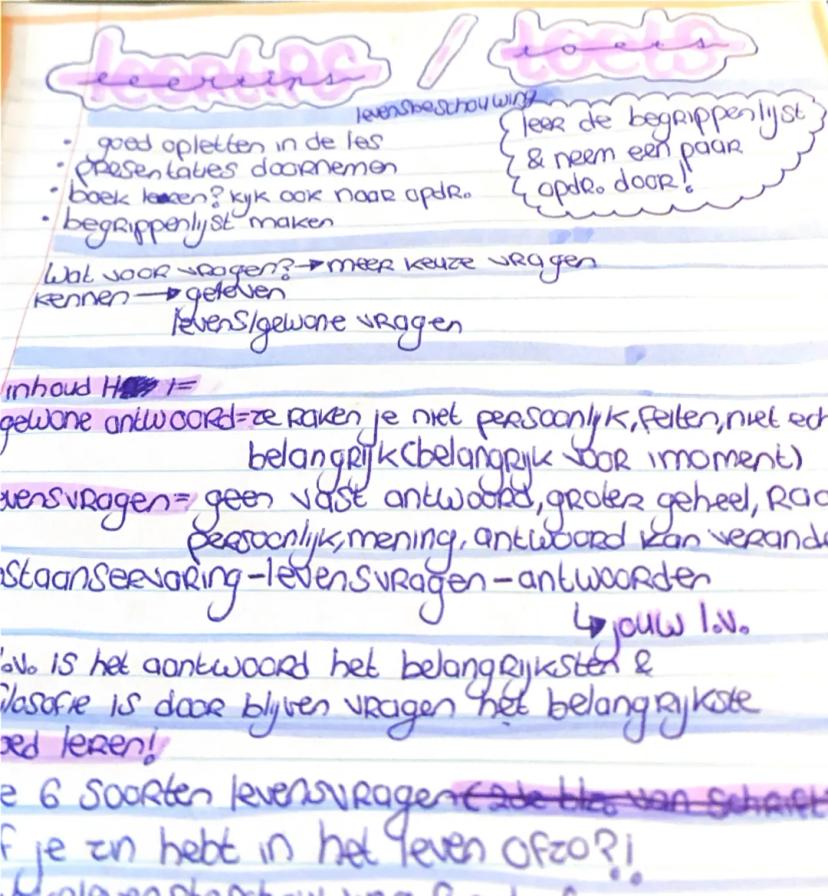 leertips / toets
levensbeschouwing
leer de begrippenlijst
& neem een paar
opdr. door!
• goed opletten in de les
• presentaties doornemen
• boek lezen? kijk ook naar opdr.
• begrippenlijst maken
Wat voor vragen? → meer keuze vragen
kennen → geleven
levens/gewone vragen
inhoud H 1=
gewone antwoord=ze raken je niet persoonlijk, feiten, niet ech
belangrijk (belangrijk voor 1moment)
evensvragen= geen vast antwoord, groter geheel, Raa
persoonlijk, mening, antwoord kan verande
staanservaring-levensvragen-antwoorden
↳ jouw l.v.
.v. is het aantwoord het belangrijksten &
ilosofie is door blijven vragen het belangrijkste
oed leren!
e 6 soorten levensvragen (2de blz van schrift
f je zn hebt in het leven ofzo?!